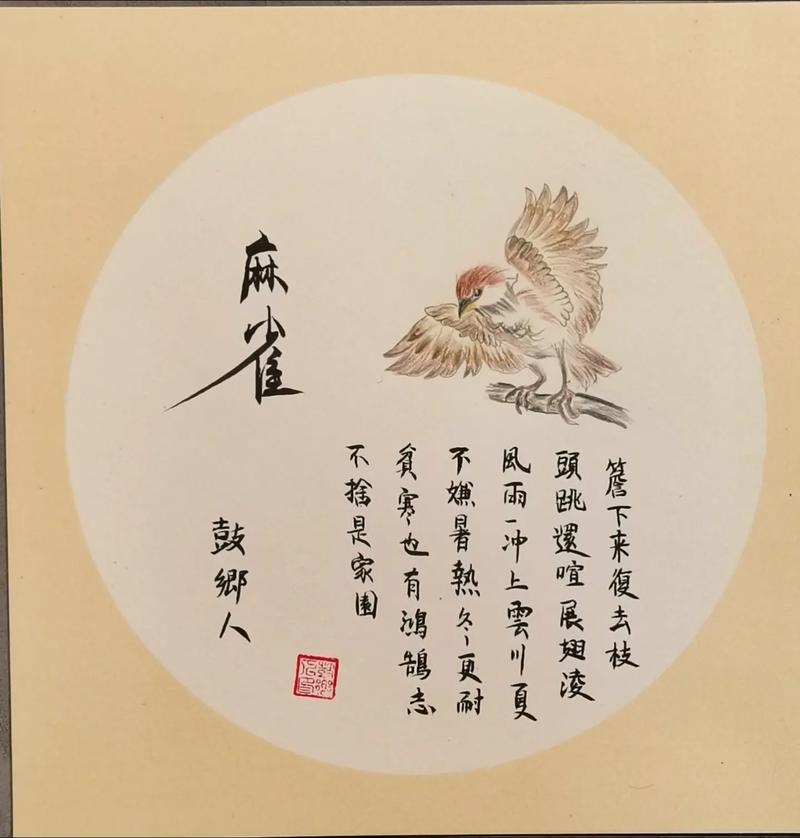 麻雀
簷下来復去枝
頭跳還喧展翅凌
風雨一沖上雲川夏
不嫌暑熱冬更耐
貧寒也有鴻鵠志
不捨是家園
鼓鄉人